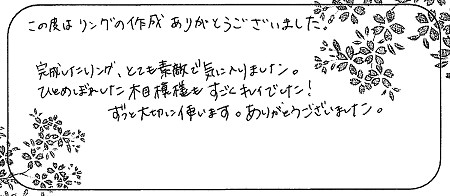 この度は リングの作成 ありがとうございました。
完成したリング、とても素敵で気に入りました。
ひとめぼれした木目模様も すごくキレイでした！
ずっと大切に使います。ありがとうございました。